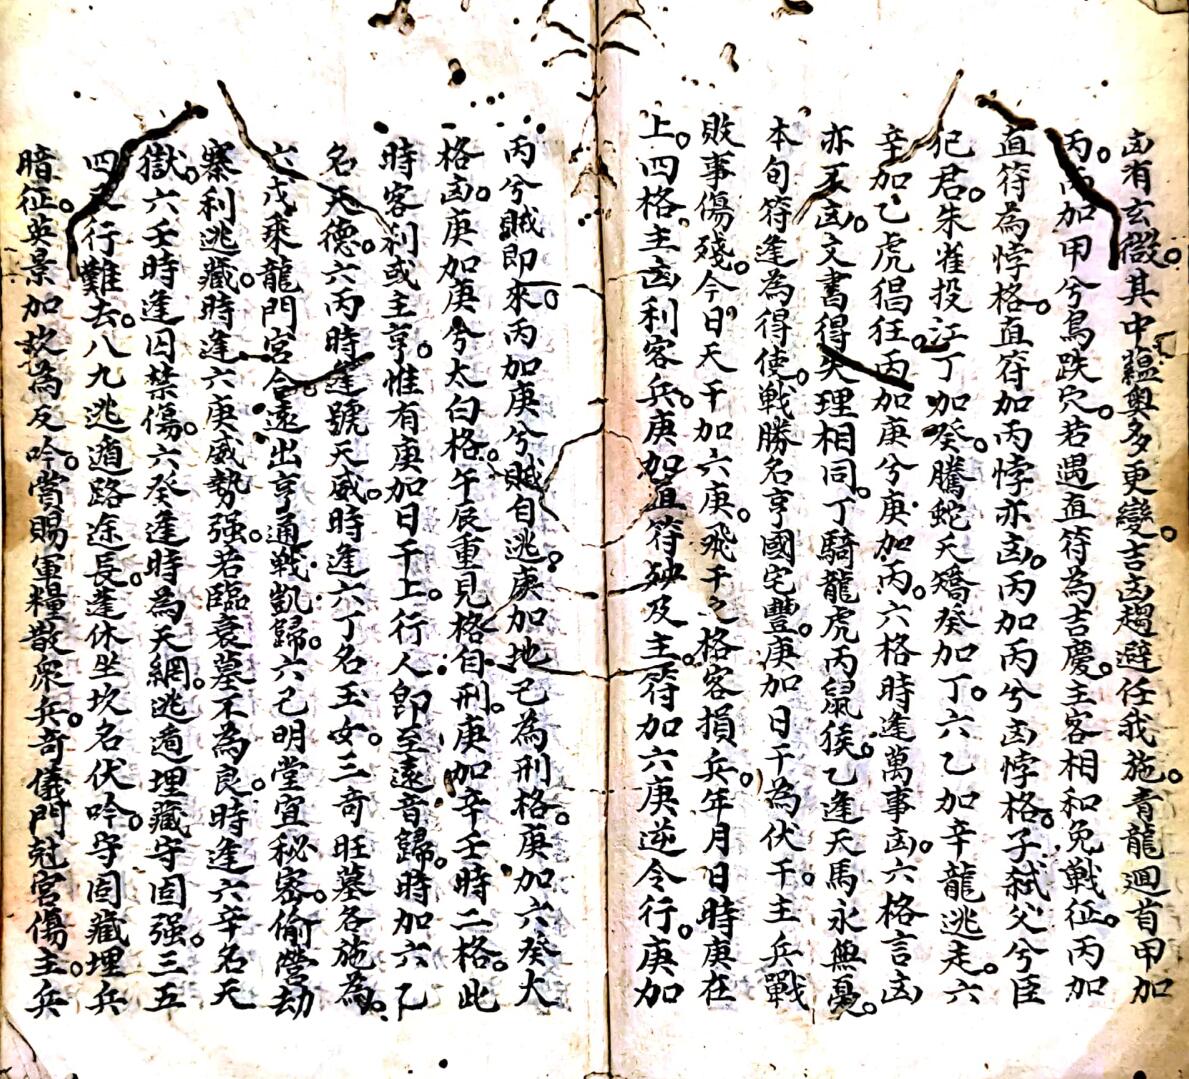 凶有玄微。其中蘊奧多更變。吉凶趨避任我施。青龍迴首甲加
丙。丙加甲兮鳥跌穴。若遇直符為吉慶。主客相和免戰征。丙加
直符為悖格。直符加丙悖亦凶。丙加丙兮凶悖格。子弒父兮臣
犯君。朱雀投江丁加癸。騰蛇夭矯癸加丁。六乙加辛龍逃走。六
辛加乙虎猖狂。丙加庚兮庚加丙。六格時逢萬事凶。六格言凶
亦不凶。文書得失理相同。丁騎龍虎丙鼠猴。乙逢天馬永無憂。
本旬符逢為得使。戰勝名亨國宅豐。庚加日干為伏干。主兵戰
敗事傷殘。今日天干加六庚。飛干之格客損兵。年月日時庚在
上。四格主凶利客兵。庚加直符殃及主。符加六庚逆令行。庚加
丙兮賊即來。丙加庚兮賊自逃。庚加地己為刑格。庚加六癸大
格凶。庚加庚兮太白格。午辰重見格自刑。庚加辛壬時二格。此
時客利或主亨。惟有庚加日干上。行人即至遠音歸。時加六乙
名天德。六丙時逢號天威。時逢六丁名玉女。三奇旺墓各施為。
六戊乘龍門宮合。遠出亨通戰凱歸。六己明堂宜秘密。偷營劫
寨利逃藏。時逢六庚威勢強。若臨衰墓不為良。時逢六辛名天
獄。六壬時逢囚禁傷。六癸逢時為天網。逃遁埋藏守固強。三五
四 行難去。八九逃遁路途長。蓬休坐坎名伏吟。守固藏埋兵
暗征。英景加坎為反吟。賞賜軍糧散眾兵。奇儀門尅宮傷主。兵